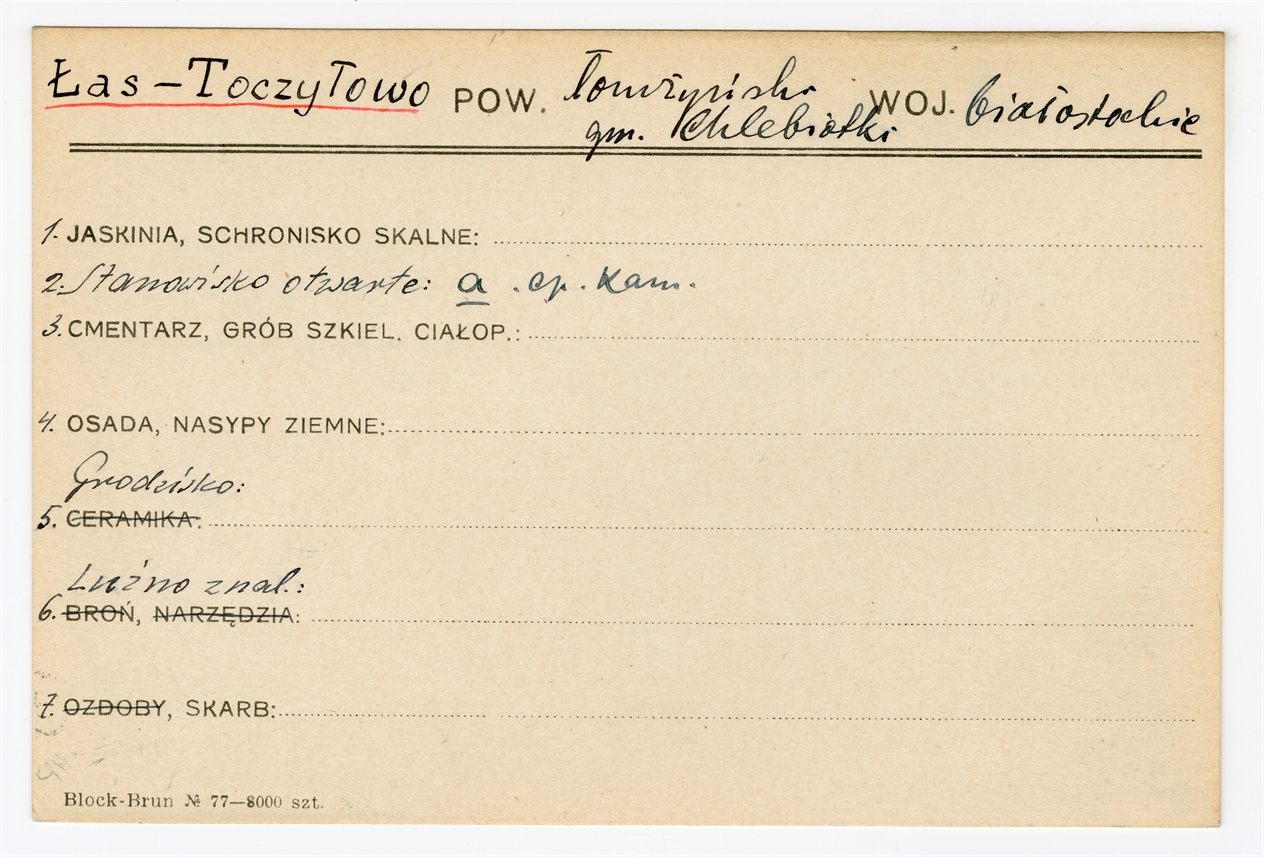 Łas-Toczyłowo POW. łomżyński WOJ. białostockie
gm. Chlebiotki
1. JASKINIA, SCHRONISKO SKALNE:
2. Stanowisko otwarte: a . ep. kam.
3. CMENTARZ, GRÓB SZKIEL. CIAŁOP.:
4. OSADA, NASYPY ZIEMNE:
Grodzisko:
5. CERAMIKA:
Luźno znal.:
6. BROŃ, NARZĘDZIA:
7. OZDOBY, SKARB:
Block-Brun № 77—8000 szt.